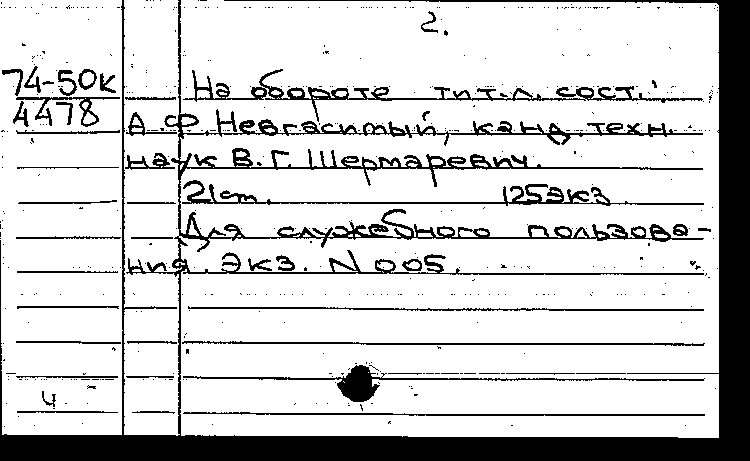 2.
74-50к На обороте тит.л. сост.:
4478 А.Ф. Невгасимый, канд. техн.
наук В.Г. Шермаревич.
21 см. 125 экз
Для служебного пользова-
ния. Экз. N 005.
ч